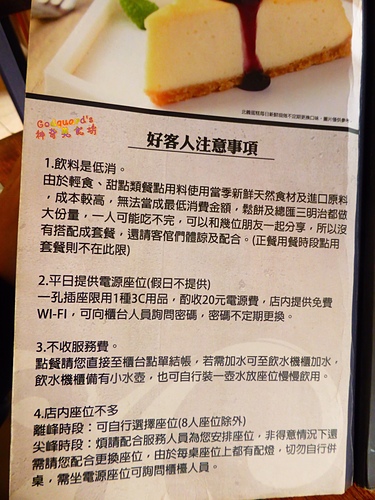 北圓蛋糕每日新鮮現做不定期更換口味，圖片僅供參考
Goodguard's
好客人注意事項
1.飲料是低消。
由於輕食、甜點類餐點用料使用當季新鮮天然食材及進口原料
，成本較高，無法當成最低消費金額，鬆餅及總匯三明治都做
大份量，一人可能吃不完，可以和幾位朋友一起分享，所以沒
有搭配成套餐，還請客倌們體諒及配合。(正餐用餐時段點用
套餐則不在此限)
2.平日提供電源座位(假日不提供)
一孔插座限用1種3C用品，酌收20元電源費，店內提供免費
WI-FI，可向櫃台人員詢問密碼，密碼不定期更換。
3.不收服務費。
點餐請您直接至櫃台點單結帳，若需加水可至飲水機櫃加水，
飲水機櫃備有小水壺，也可自行裝一壺水放座位慢慢飲用。
4.店內座位不多
離峰時段：可自行選擇座位(8人座位除外)
尖峰時段：煩請配合服務人員為您安排座位，非得意情況下還
需請您配合更換座位，由於每桌座位上都有配燈，切勿自行併
桌，需坐電源座位可詢問櫃檯人員。